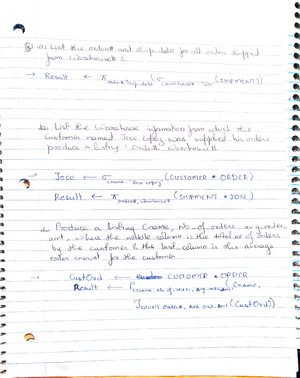 Q) a) List the order# and ship date for all orders shipped
from Warehouse# 2
→ Result ← π order#, ship date (σ warehouse# = (SHIPMENT))
b) List the Warehouse information from which the
customer named Jose Lopez was supplied his orders
produce a listing : Order#, Warehouse#
→ Jose ← σ cname = 'Jose Lopez' (CUSTOMER * ORDER)
Result ← π order#, warehouse# (SHIPMENT * JOSE)
c) Produce a listing Cname, No_of_orders, avg_order_
amt, where the middle column is the total no of orders
by the customer & the last column is the average
order amount for the customer
→ CustOrd ← CUSTOMER * ORDER
Result ← (Cname,
COUNT Order#, AVG Ord_Amt (CustOrd))